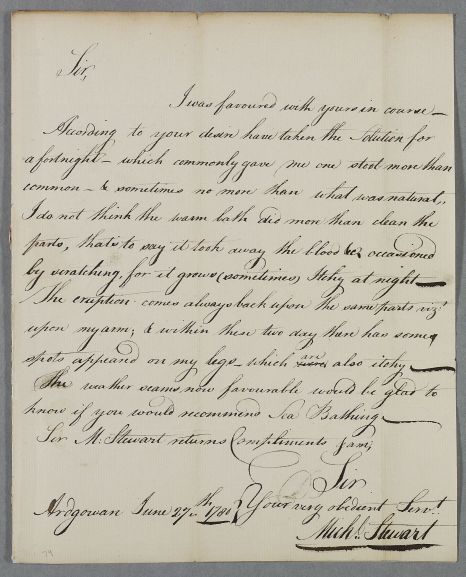 Sir,
I was favoured with yours in course –
According to your desire have taken the Solution for
a fortnight – which commonly gave me one stool more than
common – & sometimes no more than what was natural,
I do not think the warm bath did more than clean the
parts, thats to say it took away the blood &c occasioned
by scratching, for it grows (sometimes) Itchy at night —
The eruption comes always back upon the same parts viz.
upon my arm; & within these two day there has some
spots appeared on my legs which are also itchy —
The weather seams now favourable would be glad to
know if you would recommend Sea Bathing —
Sir M: Stewart returns Compliments & am;
Sir
Ardgowan June 27th 1781 { Your very obedient Servt.
Michl. Stewart